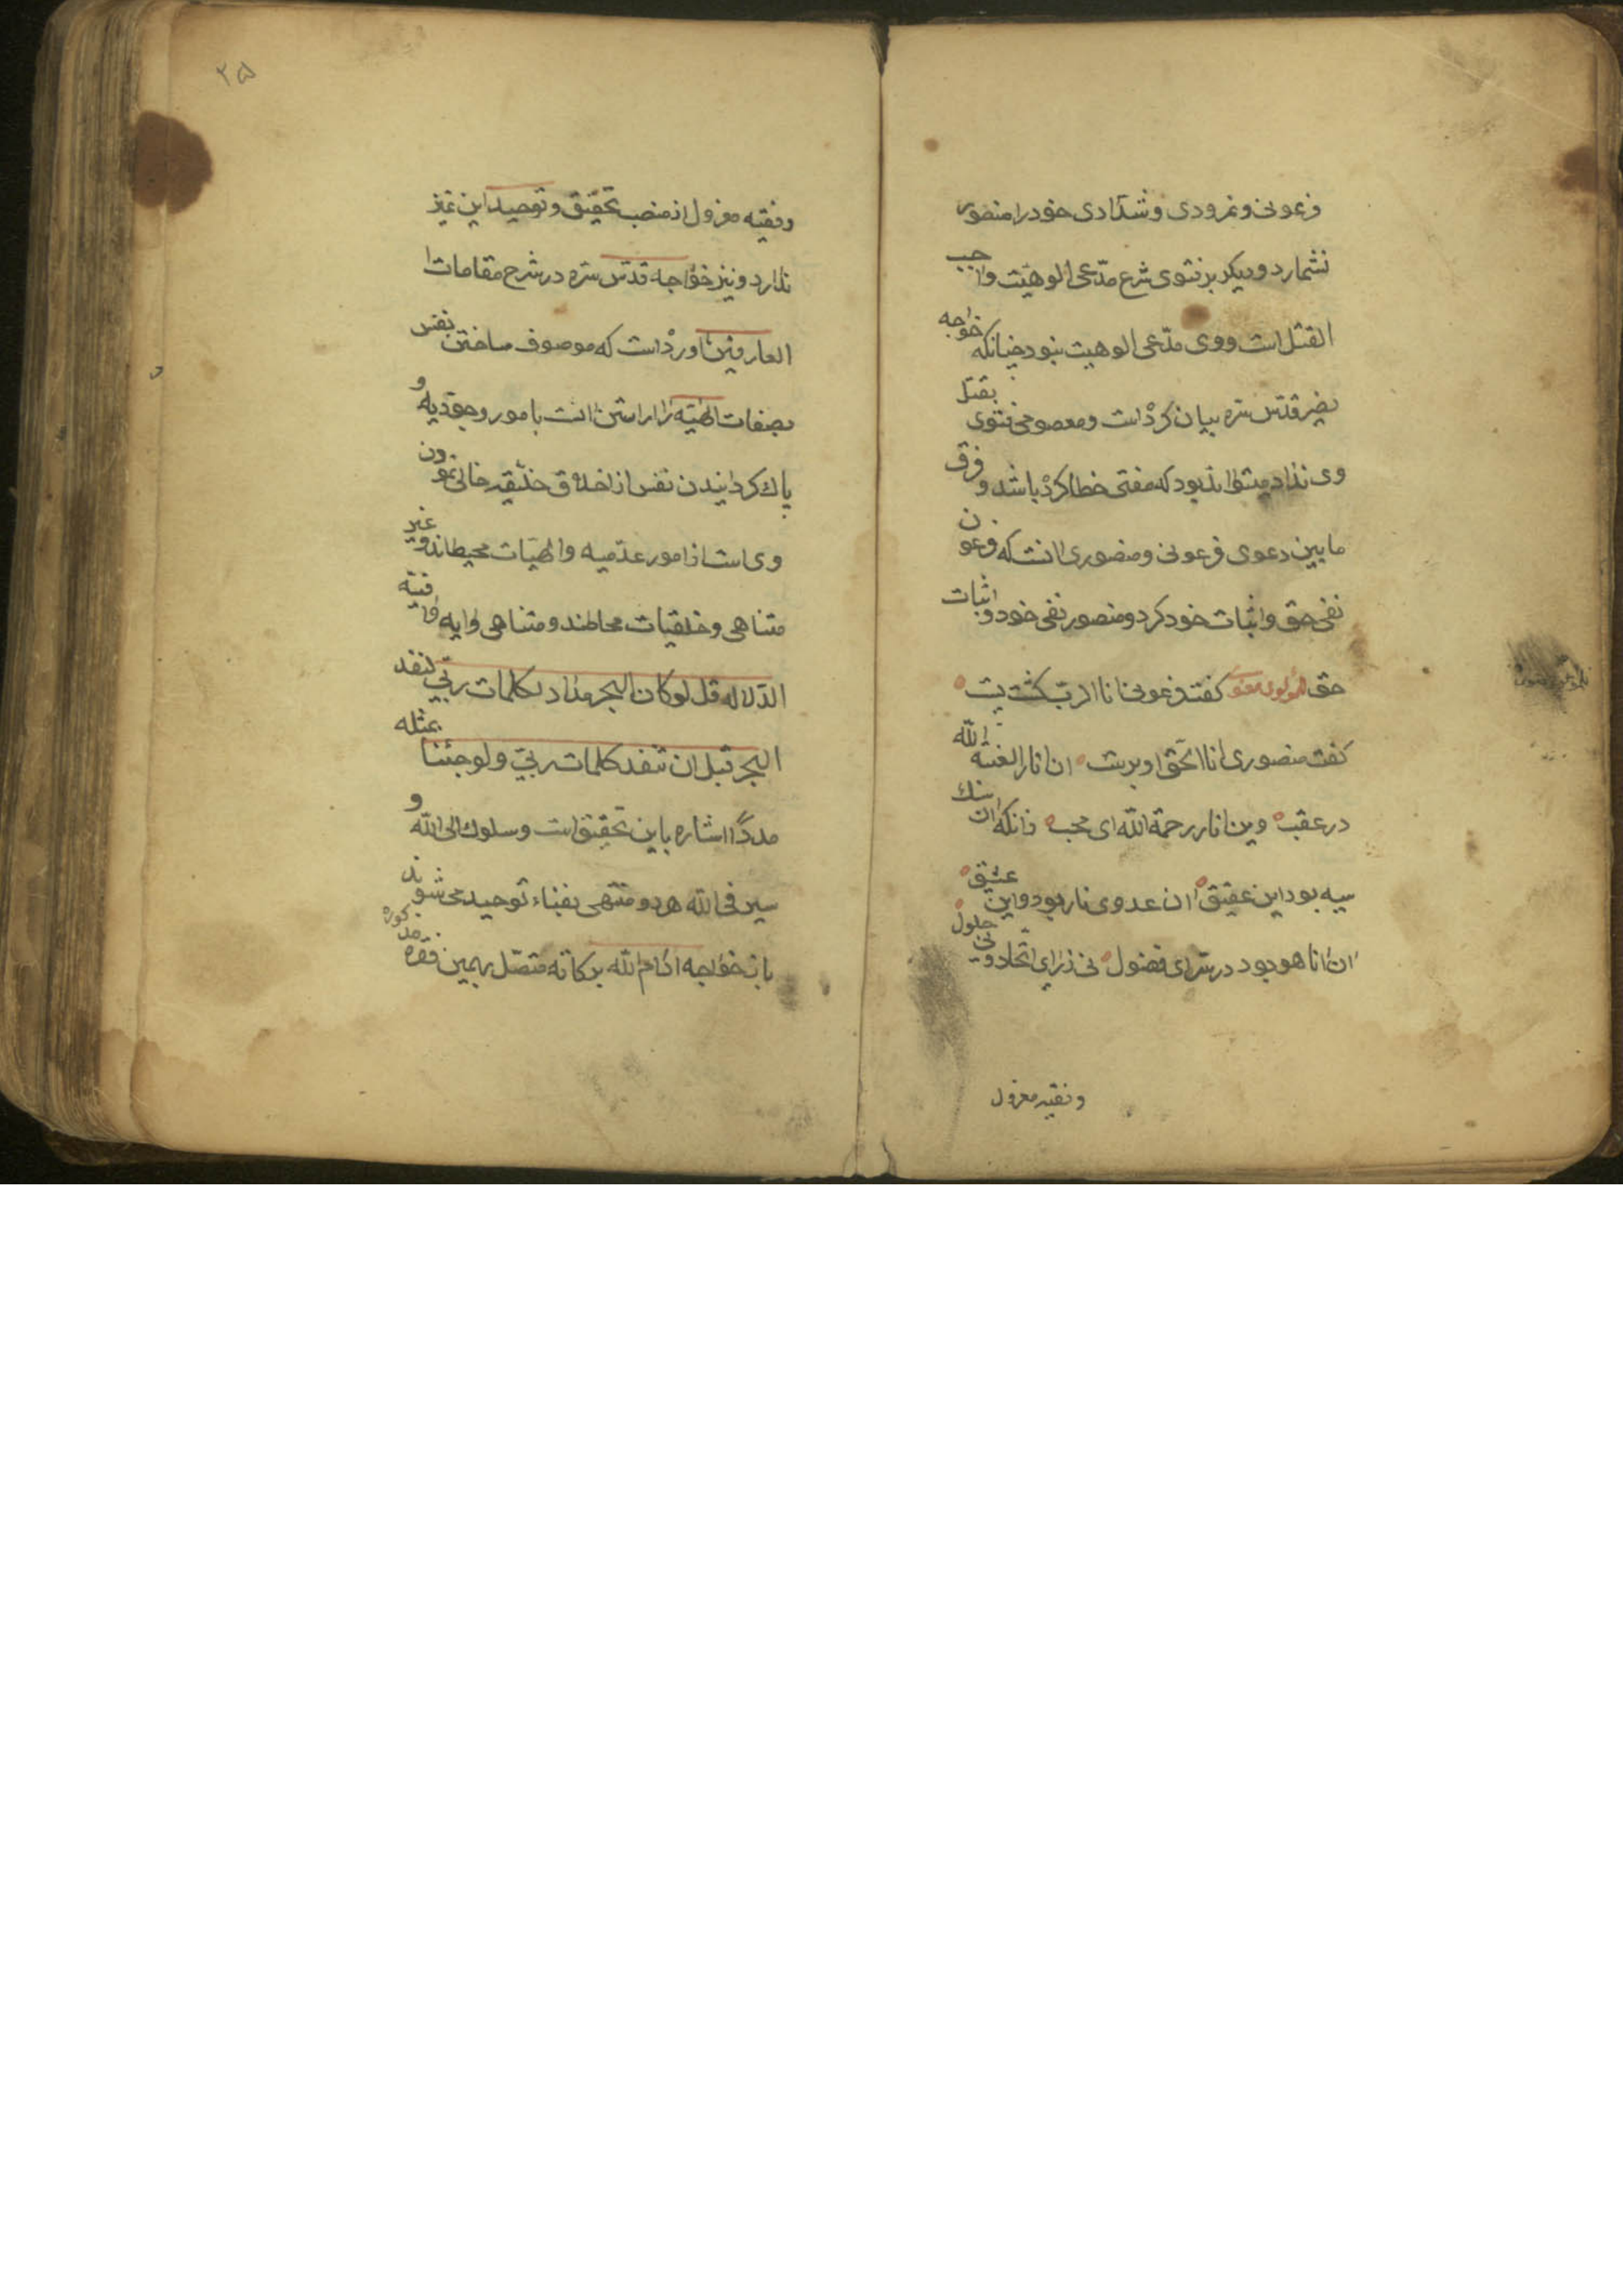 فرعونی و نمرودی و شدّادی خود را منصور
نشمارد و دیکر بر فتوی شرع مدّعی الوهیّت واجب
القتل است و وی مدّعی الوهیت نبود چنانکه خواجه
نصیر قدّس سره بیان کرده است و معصومی فتوی بقتل
وی نداد میتواند بود که مفتی خطا کرده باشد و فرق
ما بین دعوی فرعونی و منصوری انست که فرعون
نفی حق و اثبات خود کرد و منصور نفی خود و اثبات
حق کفت فرعونی انا الرب کشت پست
کفت منصوری انا الحق او برست ان انا را لعنة الله
در عقب وین انا را رحمة الله ای محب زانکه ان سنك
سیه بود این عقیق ان عدوی نار بود و این عشیق
ان انا هو بود در سرّ ای فضول نی ز رای اتحاد و نی حلول
و فقیه معزول
۲۵
و فقیه معزول از منصب تحقیق و توحید این تمیز
ندارد و نیز خواجه قدّس سره در شرح مقامات ا
العارفین اورده است که موصوف ساختن نفس
بصفات الهیّه اراستن انست بامور وجودیه و
پاك کردانیدن نفس از اخلاق خلقیه خالی نمودن
وی است از امور عدمیه و الهیّات محیط‌اند و غیر
متناهی و خلقیات محاطند و متناهی و ایه وافیة
الدلاله قل لو کان البحر مدادا لکلمات ربّی لنفد
البحر قبل ان تنفد کلمات ربّی و لو جئنا بمثله
مددًا اشاره باین تحقیق است و سلوك الی الله و
سیر فی الله هر دو منتهی بفناء توحید می‌شوند
باز خواجه ادام الله برکاته متصل بهمین فقره مذکوره